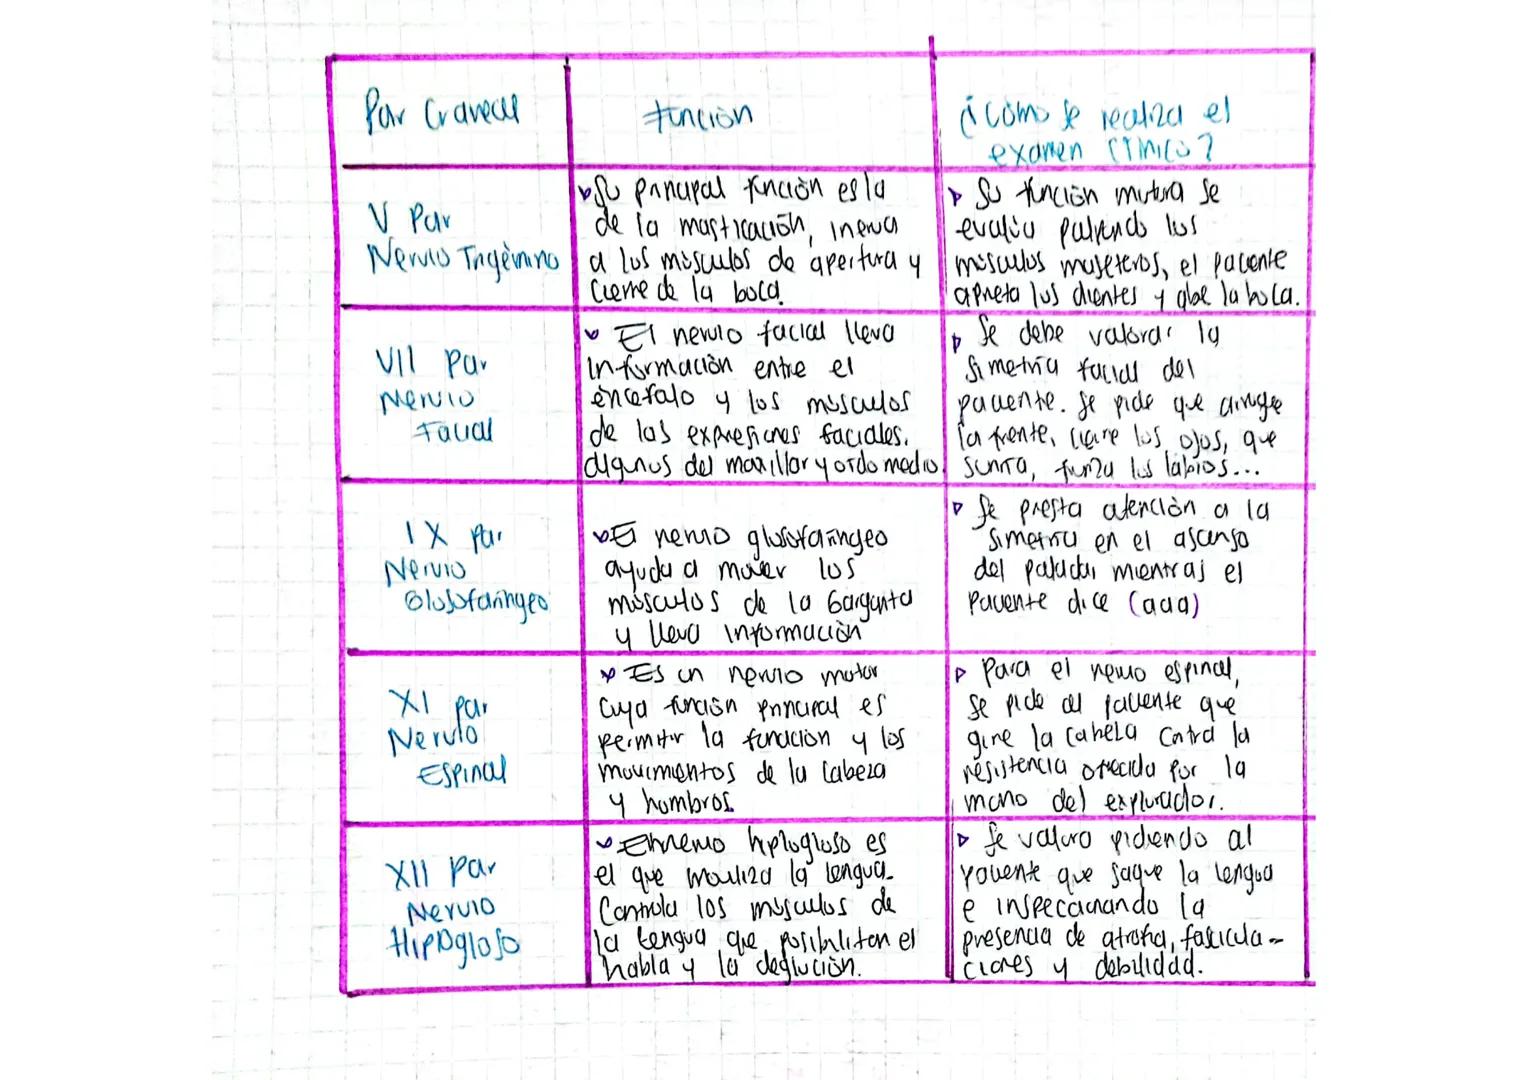 Par Craneal
Función
¿Cómo se realiza el
examen clínico?
V Par
Nervio Trigémino
Su principal función es la
de la masticación, inerva
a los músculos de apertura y
cierre de la boca.
Su función motora se
evalúa palpando los
músculos maseteros, el paciente
aprieta los dientes y abe la boca.
VII Par
Nervio
Facial
El nervio facial lleva
información entre el
encéfalo y los músculos
de las expresiones faciales.
algunos del maxillar y oído medio.
Se debe valorar la
simetría facial del
paciente. Se pide que arrugue
la frente, cierre los ojos, que
sonría, frunza los labios...
IX Par
Nervio
Glosofaríngeo
El nervio glosofaríngeo
ayuda a mover los
músculos de la Garganta
y lleva información
Se presta atención a la
simetría en el ascenso
del paladar mientras el
paciente dice (aaa)
XI par
Nervio
Espinal
Es un nervio motor
cuya función principal es
permitir la función y los
movimientos de la cabeza
y hombros.
Para el nervio espinal,
se pide al paciente que
gire la cabeza contra la
resistencia ofrecida por la
mano del explorador.
XII Par
Nervio
Hipogloso
El nervio hiplogloso es
el que moviliza la lengua.
Controla los músculos de
la lengua que posibilitan el
habla y la deglución.
Se valora pidiendo al
paciente que saque la lengua
e inspeccionando la
presencia de atrofia, fascicula-
ciones y debilidad.